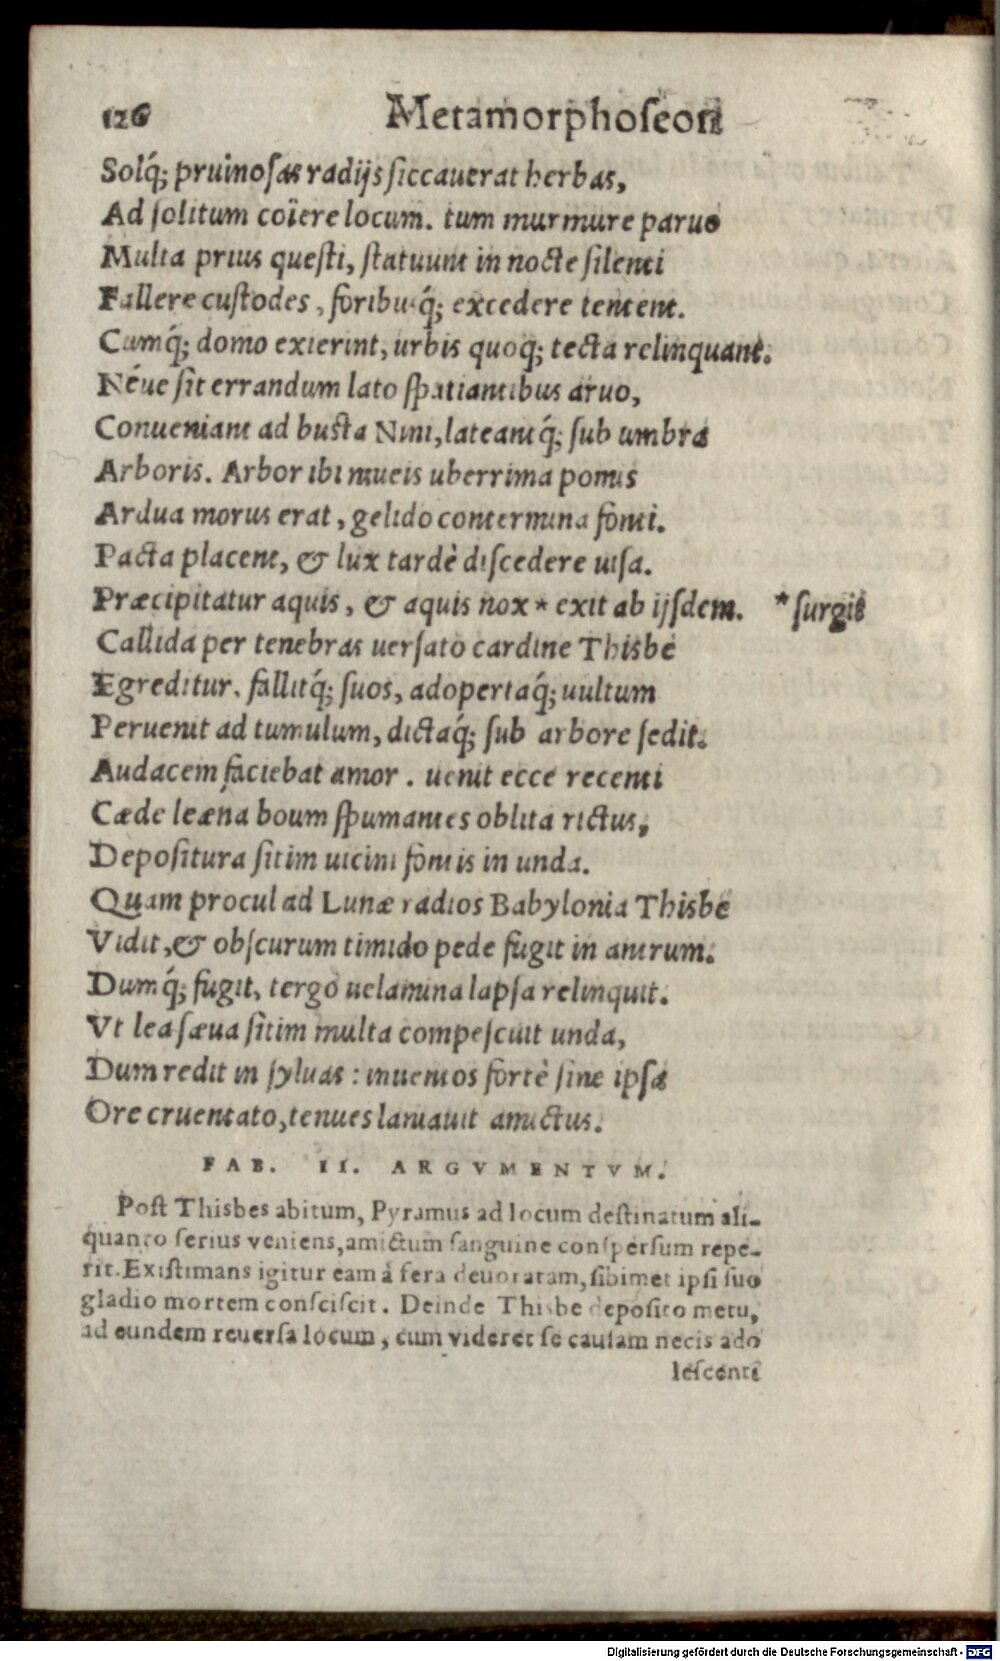 126 Metamorphoseon
Solq́; pruinosas radijs siccauerat herbas,
Ad solitum coiere locum. tum murmure paruo
Multa prius questi, statuunt in nocte silenti
Fallere custodes, foribusq́; excedere tentent.
Cumq́; domo exierint, urbis quoq; tecta relinquant.
Néue sit errandum lato spatiantibus aruo,
Conueniant ad busta Nini, lateantq́; sub umbra
Arboris. Arbor ibi niueis uberrima pomis
Ardua morus erat, gelido contermina fonti.
Pacta placent, & lux tardè discedere uisa.
Præcipitatur aquis, & aquis nox * exit ab ijsdem. * surgit
Callida per tenebras uersato cardine Thisbe
Egreditur. fallitq́; suos, adopertaq́; uultum
Peruenit ad tumulum, dictaq́; sub arbore sedit.
Audacem faciebat amor. uenit ecce recenti
Cæde leæna boum spumantes oblita rictus,
Depositura sitim uicini fontis in unda.
Quam procul ad Lunæ radios Babylonia Thisbe
Vidit, & obscurum timido pede fugit in antrum.
Dumq́; fugit, tergo uelamina lapsa relinquit.
Vt lea sæua sitim multa compescuit unda,
Dum redit in syluas: inuentos fortè sine ipsa
Ore cruentato, tenues laniauit amictus.
FAB. II. ARGVMENTVM.
Post Thisbes abitum, Pyramus ad locum destinatum ali-
quanto serius veniens, amictum sanguine conspersum repe-
rit. Existimans igitur eam á fera deuoratam, sibimet ipsi suo
gladio mortem consciscit. Deinde Thisbe deposito metu,
ad eundem reuersa locum, cum videret se causam necis ado
lescenti
Digitalisierung gefördert durch die Deutsche Forschungsgemeinschaft - DFG